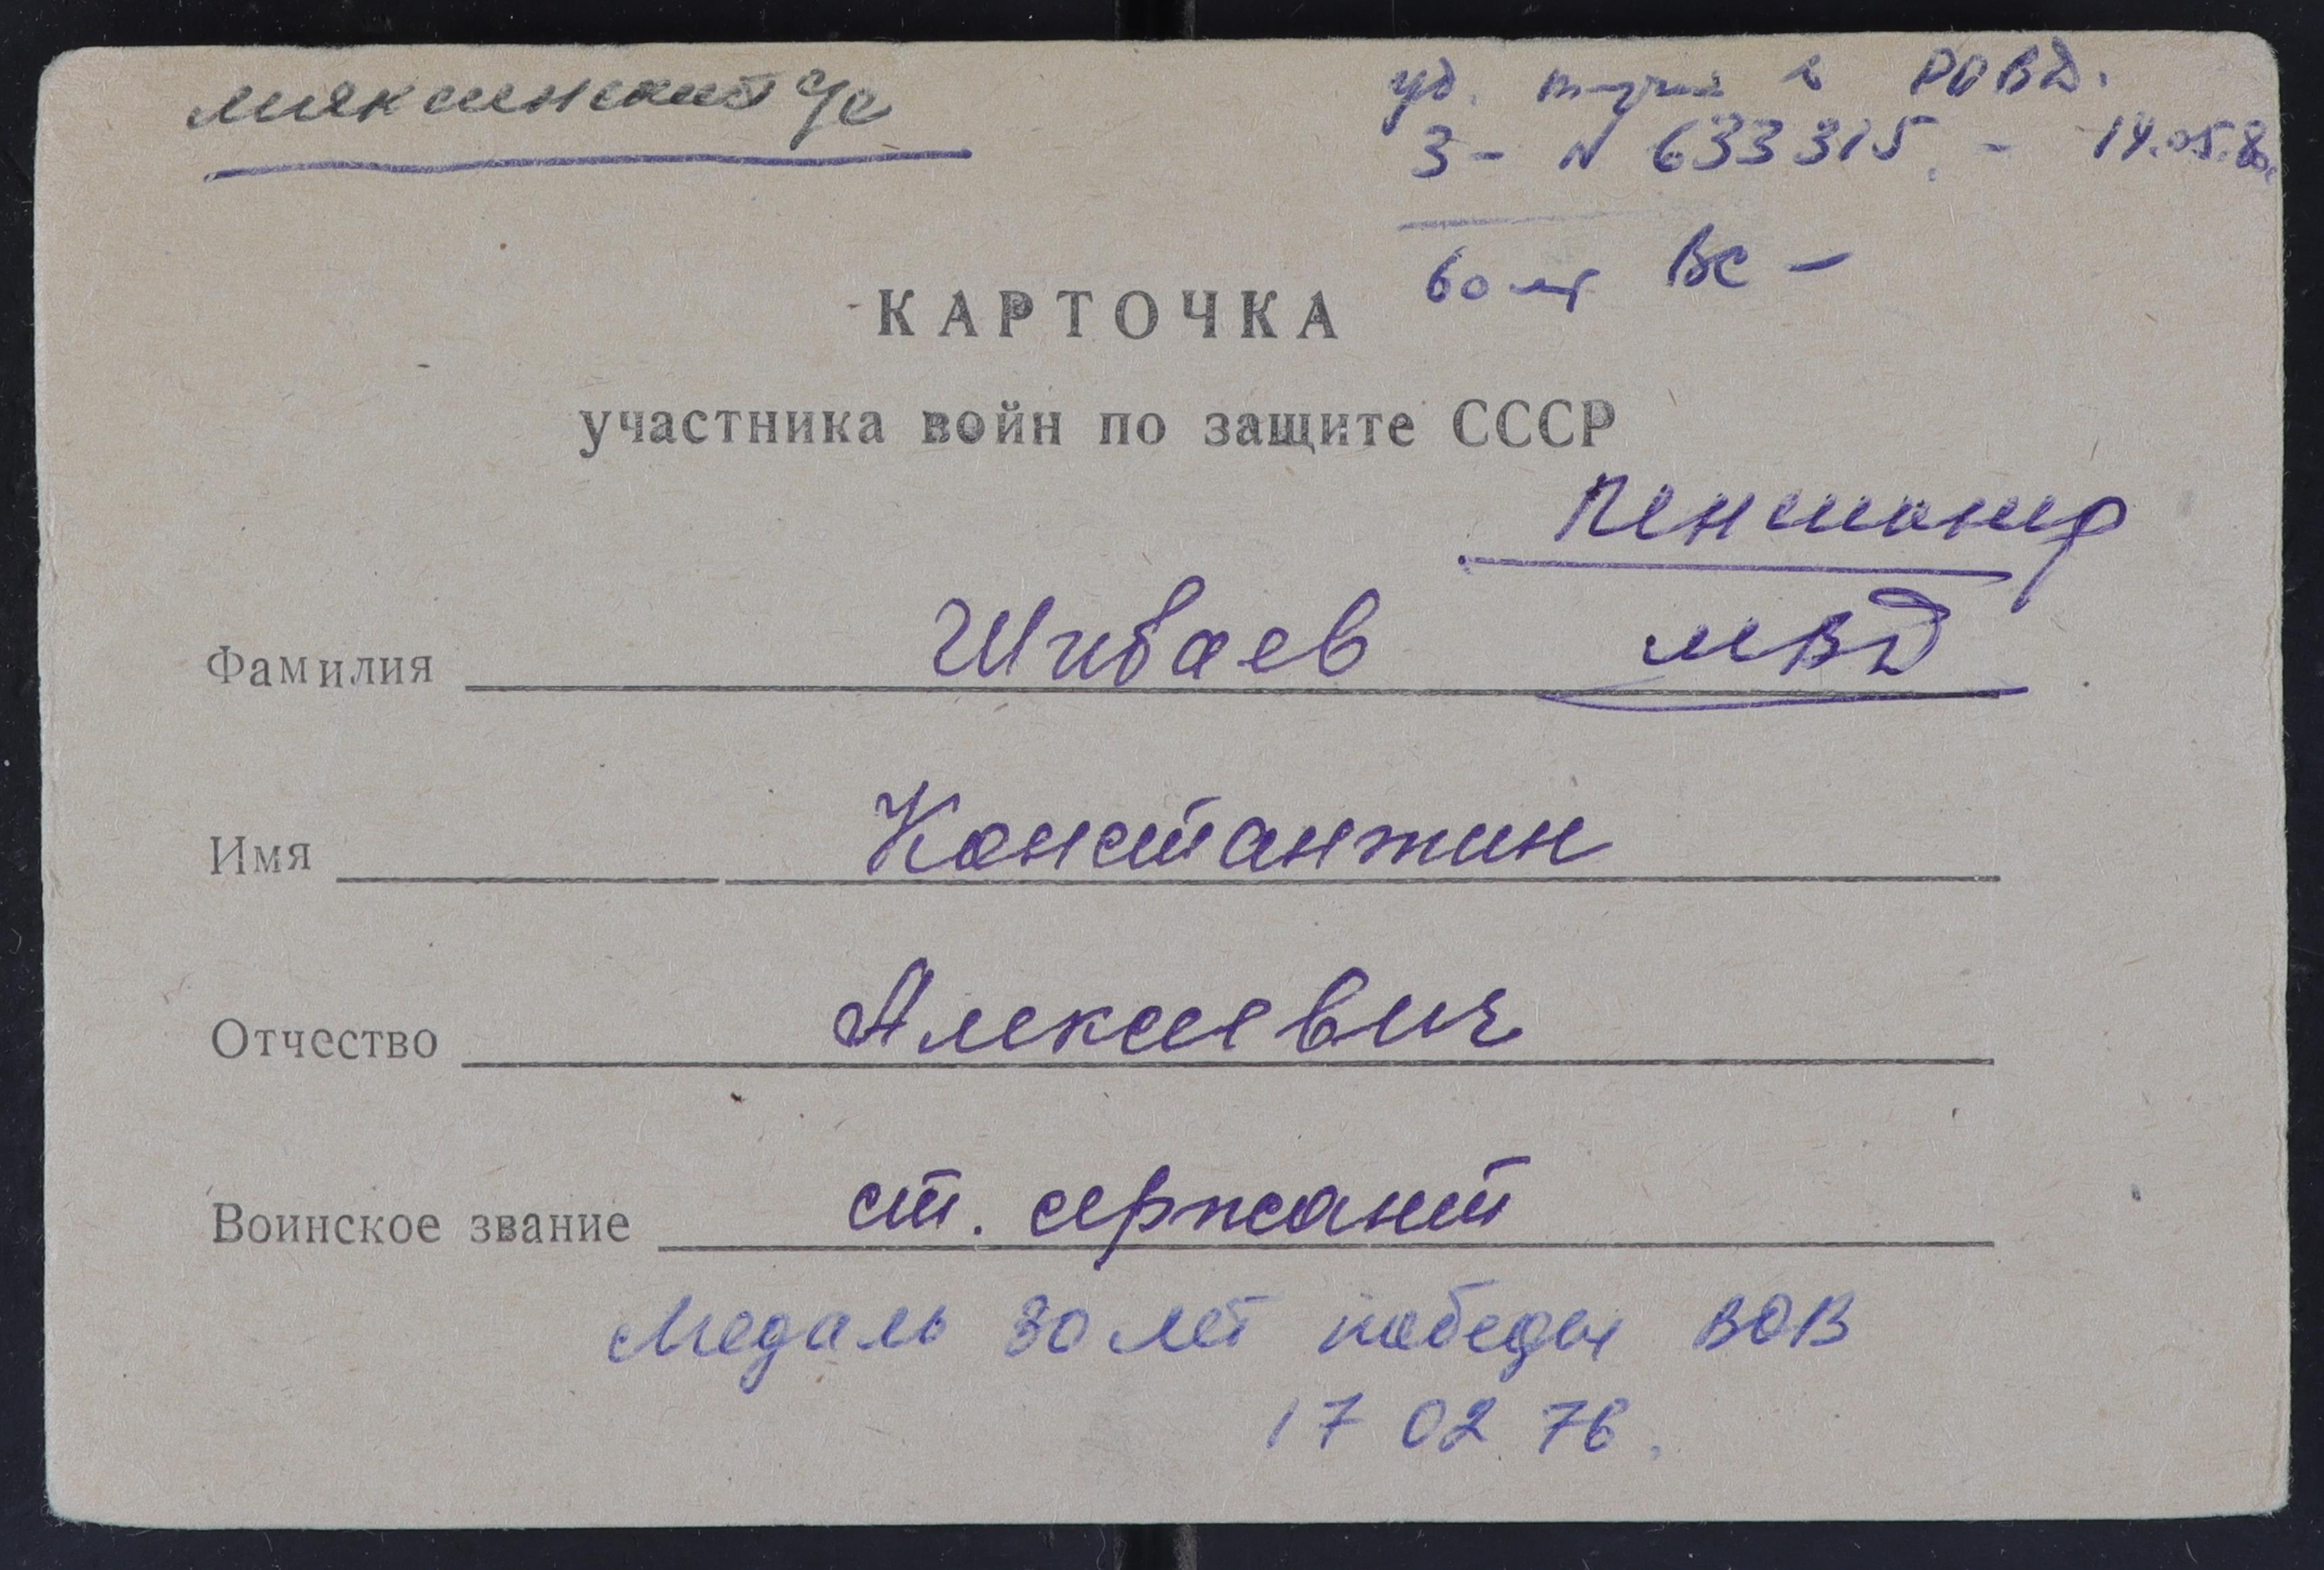 Мяксинский с/с
уд. получил в РОВД.
З - N 633315. - 14.05.80г
60 лет ВС -
КАРТОЧКА
участника войн по защите СССР
пенсионер
МВД
Фамилия Шибаев
Имя Константин
Отчество Алексеевич
Воинское звание ст. сержант
Медаль 30 лет победы ВОВ
17 02 76.